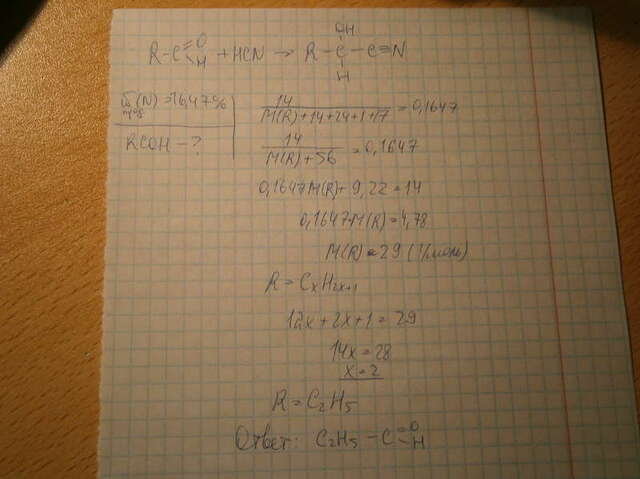 OH
R-C=O H + HCN → R-C-C≡N
H
ω(N) = 16,47%
прод
RCOH - ?
14 / M(R)+14+24+1+17 = 0,1647
14 / M(R)+56 = 0,1647
0,1647M(R)+9,22=14
0,1647M(R)=4,78
M(R)=29 (г/моль)
R = CxH2x+1
12x+2x+1=29
14x=28
x=2
R=C2H5
Ответ: C2H5-C=O H